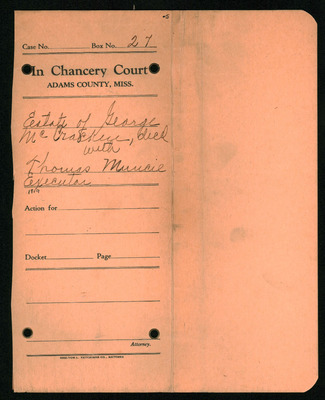 Case No. Box No. 27
In Chancery Court
ADAMS COUNTY, MISS.
Estate of George
McCracken, decd
with
Thomas Muncie
Executor
1819
Action for
Docket Page
Attorney.